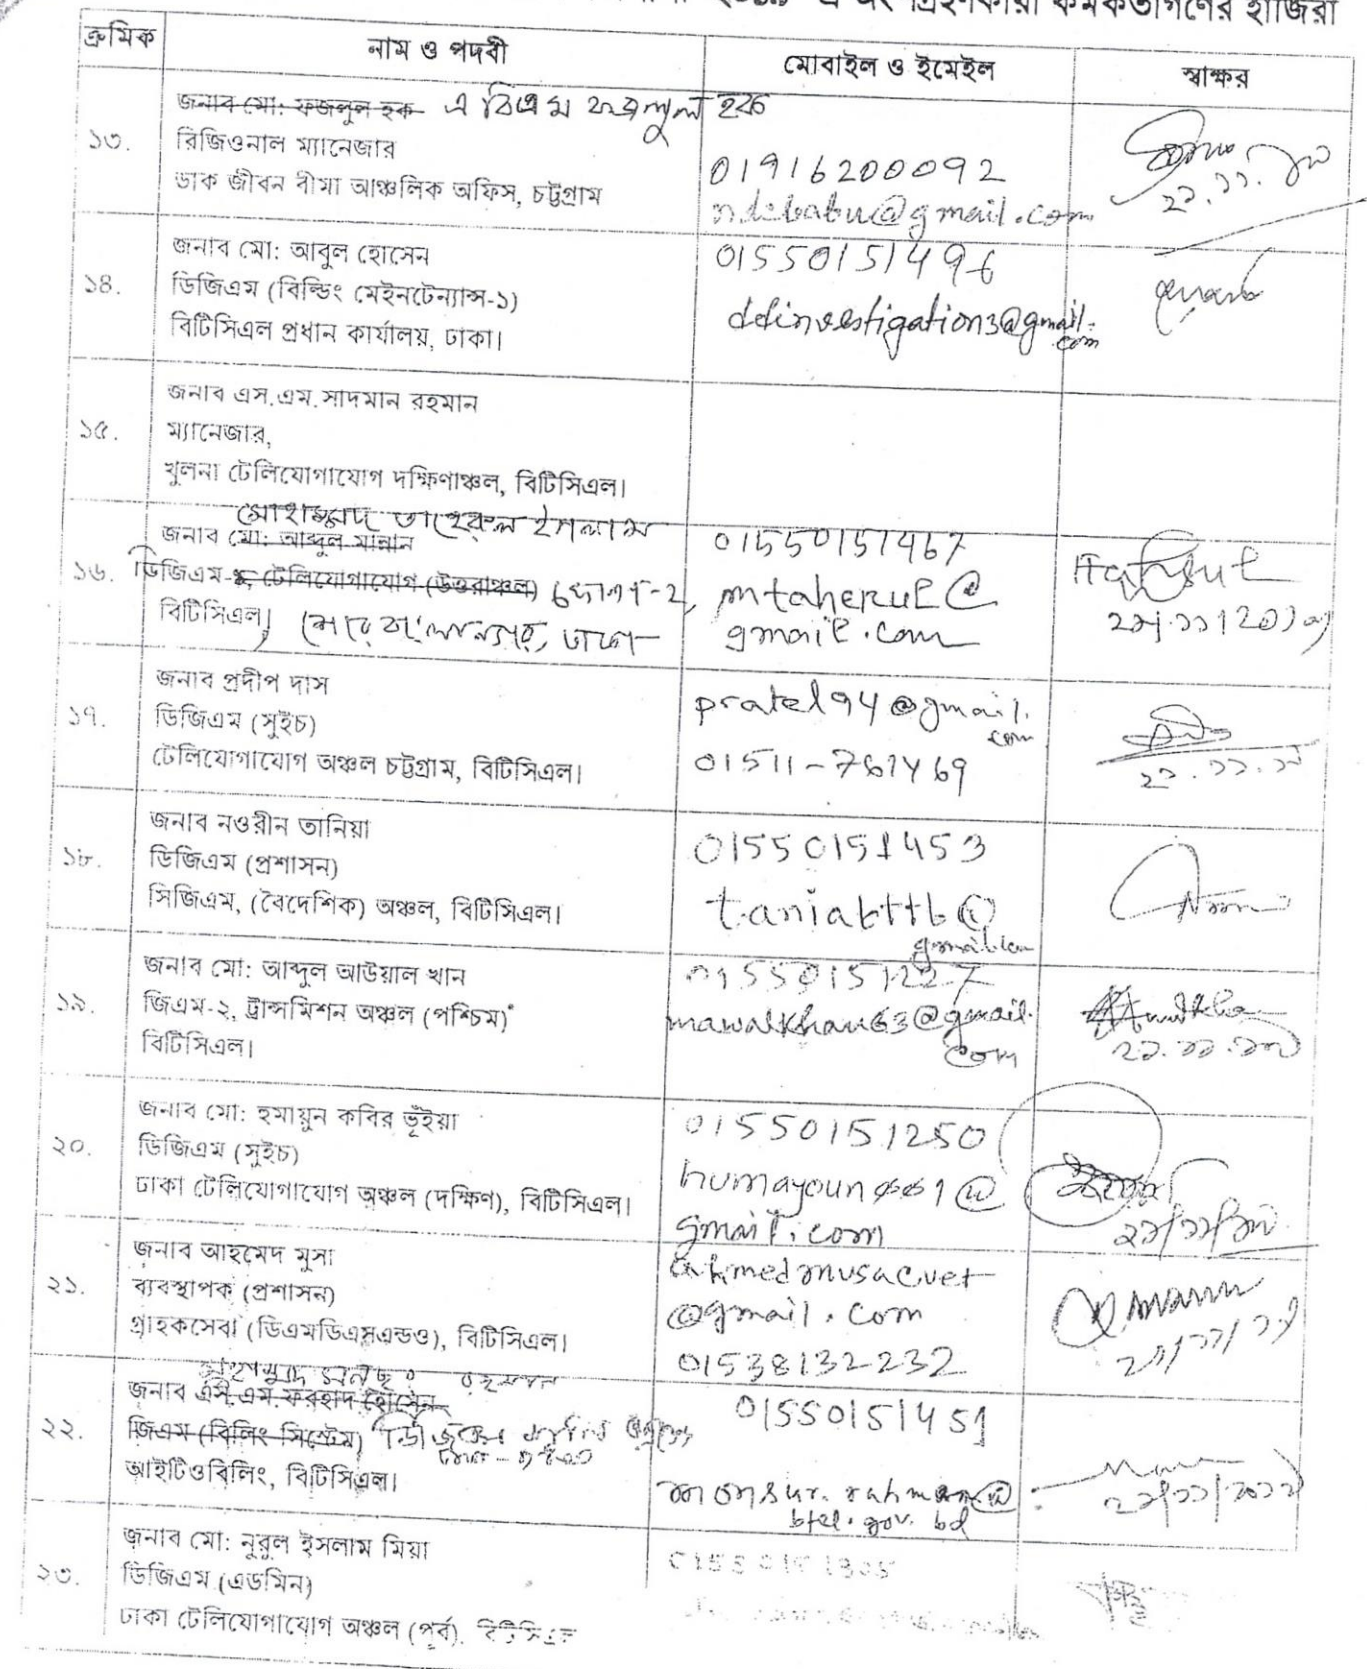 গ্রহণকারী কর্মকর্তাগণের হাজিরা
ক্রমিক
নাম ও পদবী
মোবাইল ও ইমেইল
স্বাক্ষর
১৩.
জনাব মো: ফজলুল হক এ বি এম ফজলুল হক
রিজিওনাল ম্যানেজার
ডাক জীবন বীমা আঞ্চলিক অফিস, চট্টগ্রাম
01916200092
ndebabu@gmail.com
১৪.
জনাব মো: আবুল হোসেন
ডিজিএম (বিল্ডিং মেইনটেন্যান্স-১)
বিটিসিএল প্রধান কার্যালয়, ঢাকা।
01550151496
ddinvestigation3@gmail.
com
১৫.
জনাব এস.এম.সাদমান রহমান
ম্যানেজার,
খুলনা টেলিযোগাযোগ দক্ষিণাঞ্চল, বিটিসিএল।
১৬.
মোহাম্মদ তাহেরুল ইসলাম
জনাব মো: আব্দুল মান্নান
ডিজিএম টেলিযোগাযোগ (উত্তরাঞ্চল)
বিটিসিএল শেরে বাংলানগর, ঢাকা
01550151467
mtaherul@
gmail.com
২১/১১/২০১৭
১৭.
জনাব প্রদীপ দাস
ডিজিএম (সুইচ)
টেলিযোগাযোগ অঞ্চল চট্টগ্রাম, বিটিসিএল।
pratel94@gmail.
com
01511-767469
১৮.
জনাব নওরীন তানিয়া
ডিজিএম (প্রশাসন)
সিজিএম, (বৈদেশিক) অঞ্চল, বিটিসিএল।
01550151453
১৯.
জনাব মো: আব্দুল আউয়াল খান
জিএম-২, ট্রান্সমিশন অঞ্চল (পশ্চিম)
বিটিসিএল।
01550151227
mawalkhan63@gmail.
com
২০.
জনাব মো: হুমায়ুন কবির ভূঁইয়া
ডিজিএম (সুইচ)
ঢাকা টেলিযোগাযোগ অঞ্চল (দক্ষিণ), বিটিসিএল।
01550151250
gmail.com
২১.
জনাব আহমেদ মুসা
ব্যবস্থাপক (প্রশাসন)
গ্রাহকসেবা (ডিএমডিএসএন্ডও), বিটিসিএল।
ahmedmusacuet
@gmail.com
01538132232
২২.
জনাব এস.এম.ফরহাদ হোসেন
জিএম (বিলিং সিস্টেম)
আইটিওবিলিং, বিটিসিএল।
01550151451
monsur.rahman@
btcl.gov.bd
২৩.
জনাব মো: নুরুল ইসলাম মিয়া
ডিজিএম (এডমিন)
ঢাকা টেলিযোগাযোগ অঞ্চল (পূর্ব). বিটিসিএল